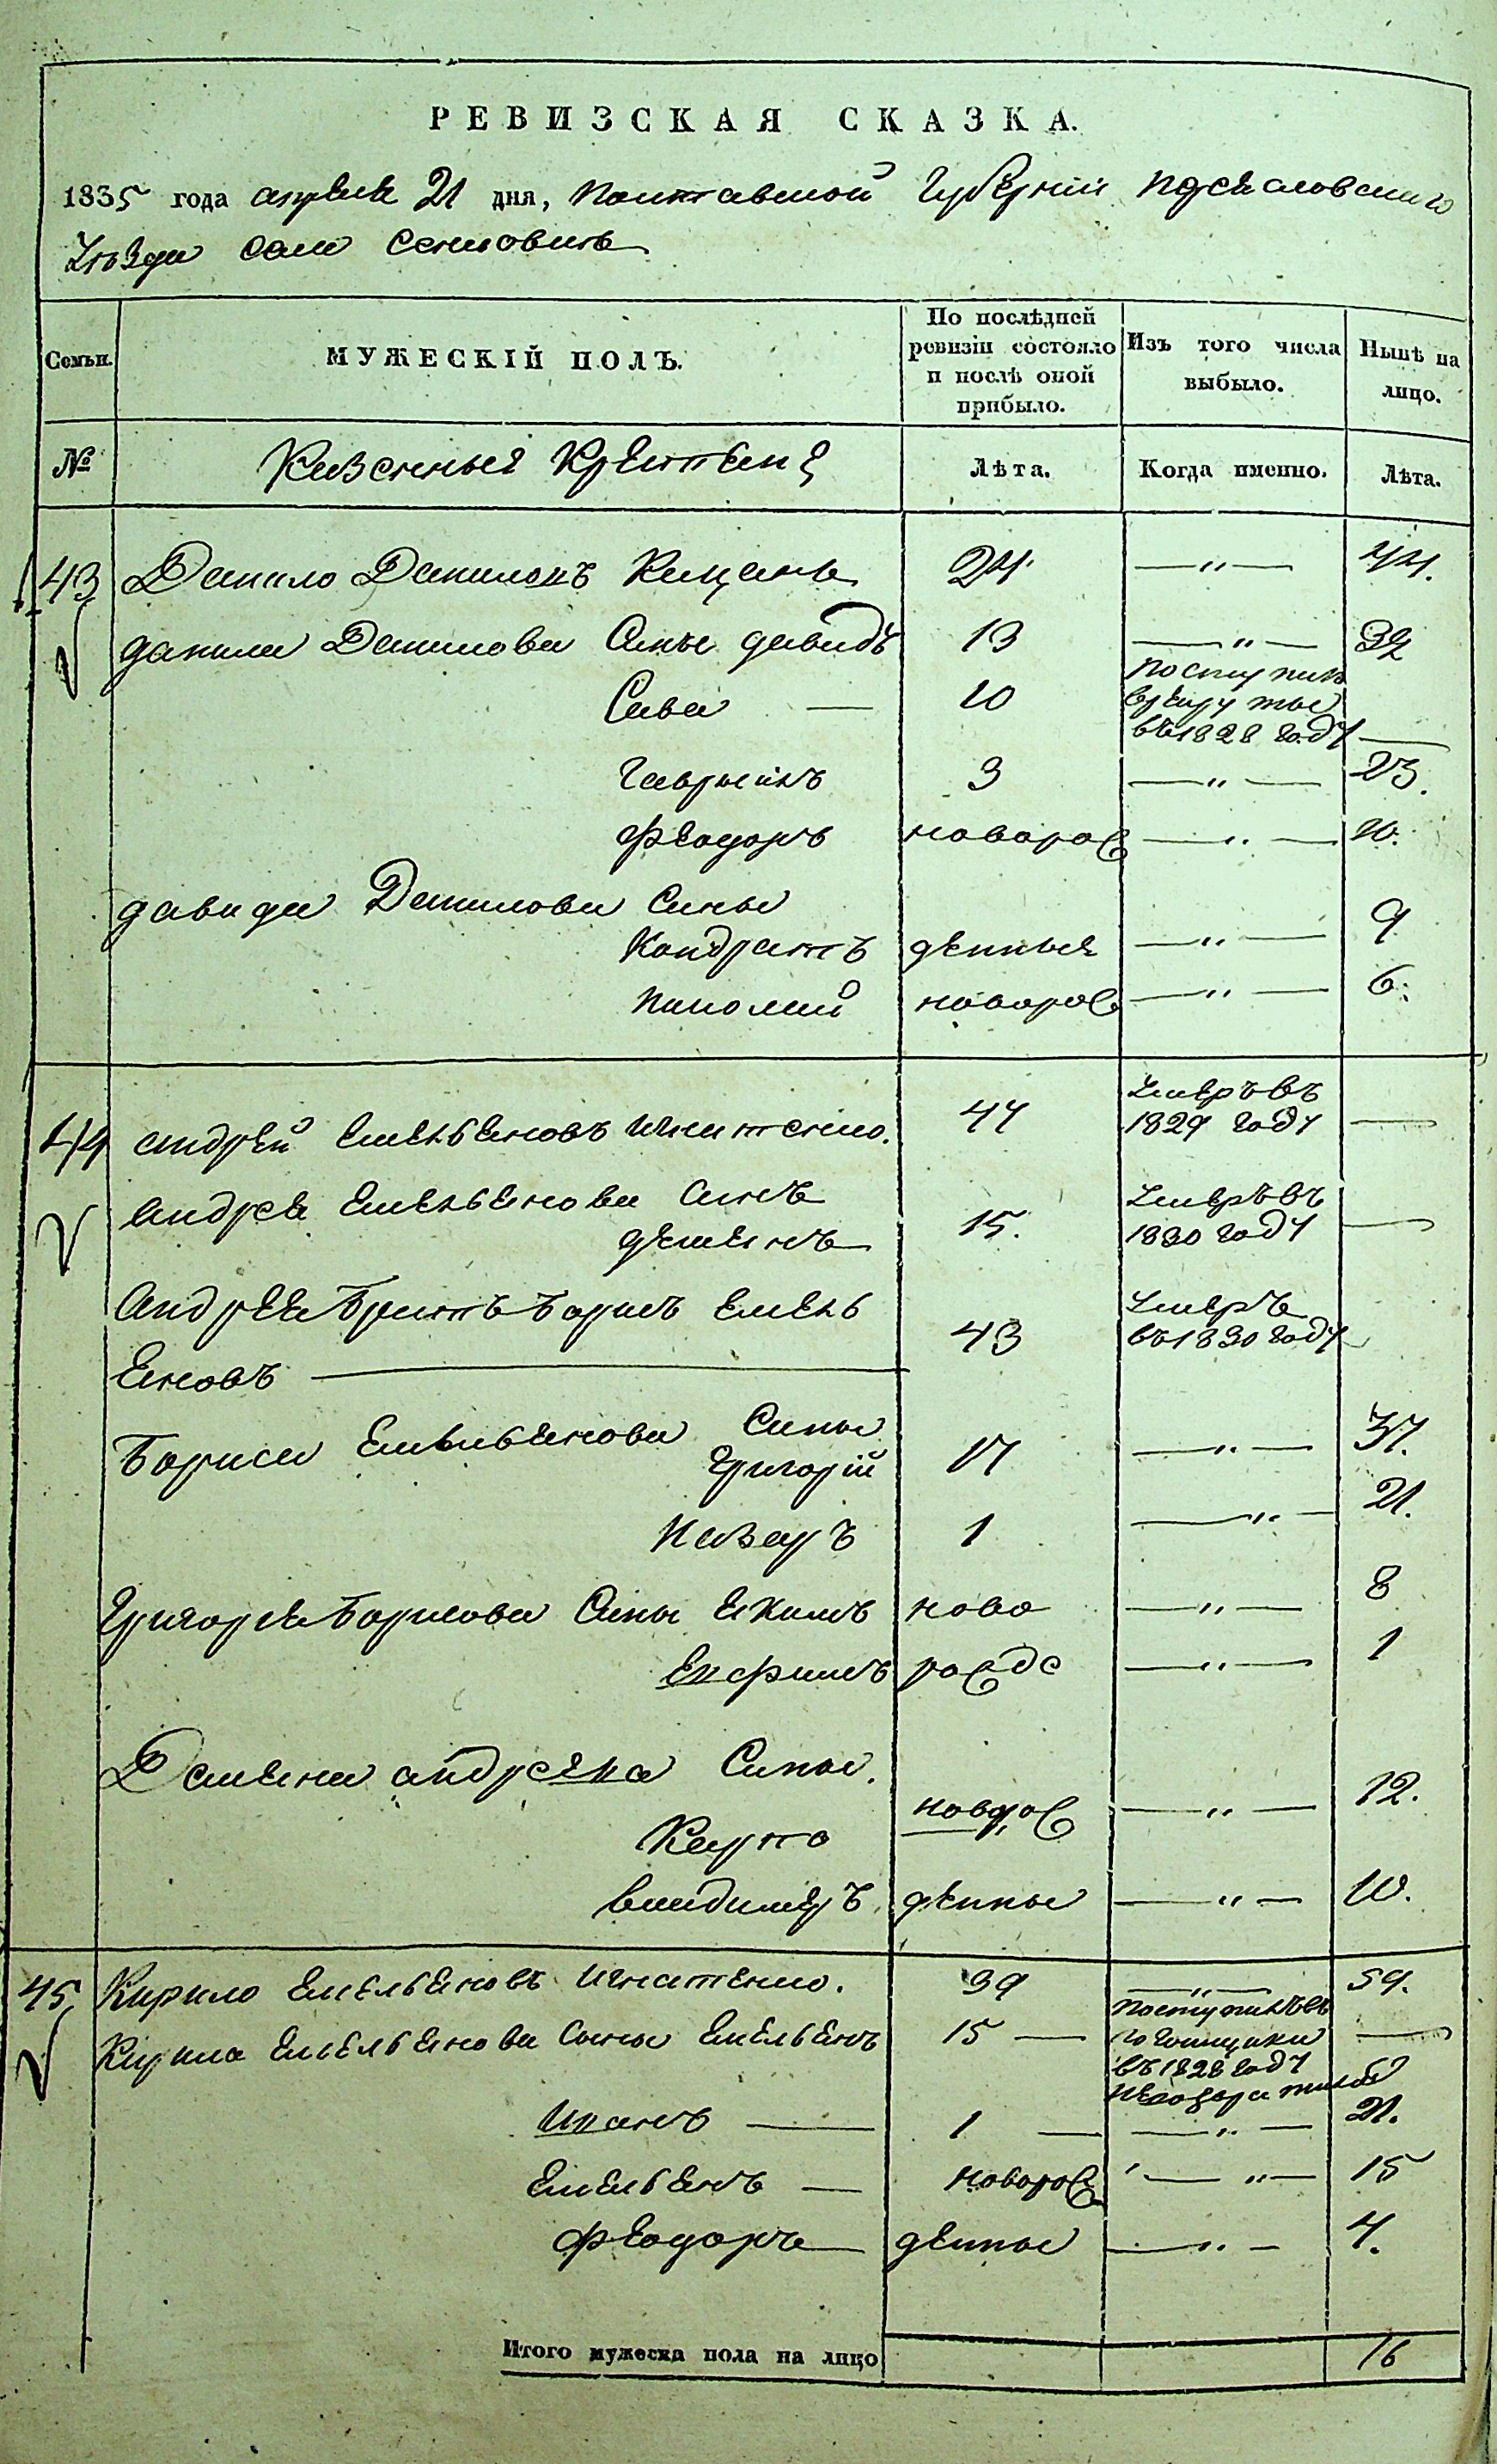 РЕВИЗСКАЯ СКАЗКА.
1835 года апреля 21 дня, Полтавской Губернiи Переяславского
Уезда села Сенковичь
Семьи. МУЖЕСКІЙ ПОЛЪ. По послѣдней ревизіи состояло и послѣ оной прибыло. Изъ того числа выбыло. Нынѣ на лицо.
№ Казенные Крестьяне Лѣта. Когда именно. Лѣта.
43 Данило Даниловъ 24 —„— 44.
данила Данилова Сыны давидъ 13 —„— 32
Сава — 10 поступилъ
в рекруты
въ 1828 году —
Гаврыилъ 3 —„— 23.
Феодоръ новорож —„— 10.
давида Данилова Сыны
Кондратъ денныя —„— 9
новорож —„— 6.
44 андрей Емельяновъ Игнатенко. 44 Умеръ въ
1829 году —
Андрея Емельянова Сынъ
демянъ 15. Умеръ въ
1830 году —
Андрея братъ Борисъ Емель
яновъ 43 Умеръ
въ 1830 году
Бориса Емельянова Сыны
Григорій 17 —„— 37.
Назаръ 1 —„— 21.
Григорія Борисова Сыны Якимъ ново —„— 8
Ефимъ рожде —„— 1
Демяна андреяна Сыны.
Карпо новорож —„— 12.
владимеръ денные —„— 10.
45. Кирило Емельяновъ Игнатенко. 39 —„— 59.
Кирила Емельянова Сыны Емельянъ 15 — поступилъ въ
погонщики —
въ 1828 году
Иванъ — 1 — —„— 21.
Емельянъ — новорож —„— 15
Феодоръ денные —„— 4.
Итого мужеска пола на лицо 16